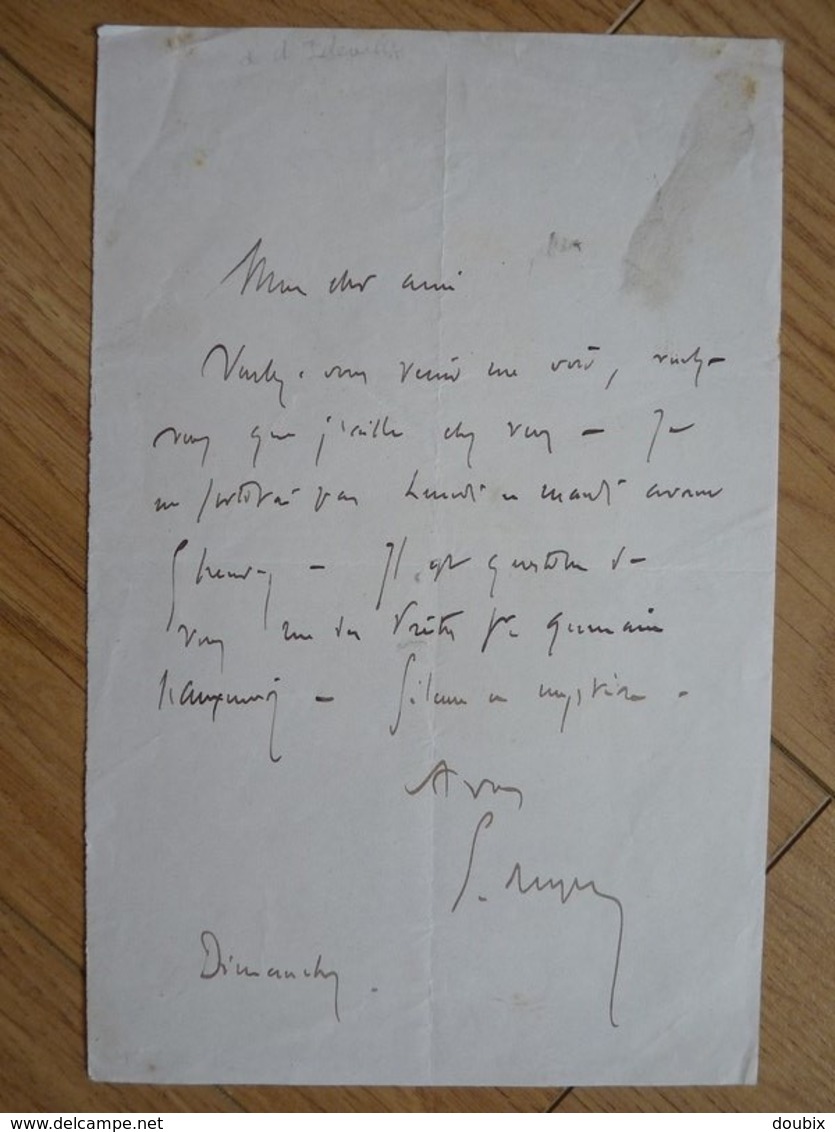 Mon cher ami
Voulez-vous venir me voir, voulez-
vous que j'aille chez vous — Je
ne sortirai pas Lundi et mardi avant
— Il est question de
vous rue des Germain
— Silence et mystère.
A vous
S.
Dimanche.
www.delcampe.net
doubix